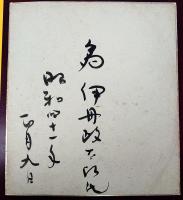 為 伊丹政太郎氏
昭和四十一年
一月九日